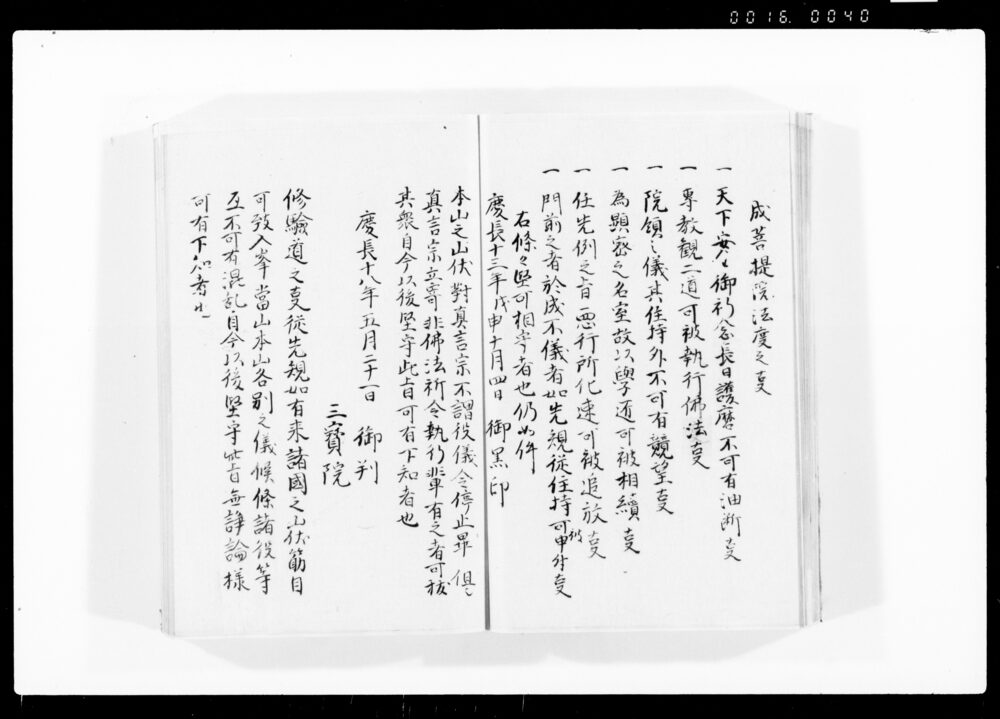 0016. 0040
成菩提院法度之叓
一 天下安全御祈念長日護摩不可有油断叓
一 専教観二道可被執行佛法叓
一 院領之儀其住持外不可有競望叓
一 為顕密之名室故以學道可被相續叓
一 任先例之旨悪行所化速可被追放叓
一 門前之者於成不儀者如先規従住持可被申付叓
右條々堅可相守者也仍如件
慶長十三年戊申十月四日 御黒印
本山之山伏對真言宗不謂役儀令停止畢但
真言宗立寄非佛法祈令執行輩有之者可秡
其衆自今以後堅守此旨可有下知者也
慶長十八年五月二十一日 御判
三寳院
修驗道之叓従先規如有来諸國之山伏筋目
可致入峯當山本山各別之儀候條諸役等
互不可有混乱自今以後堅守此旨無諍論様
可有下知者也